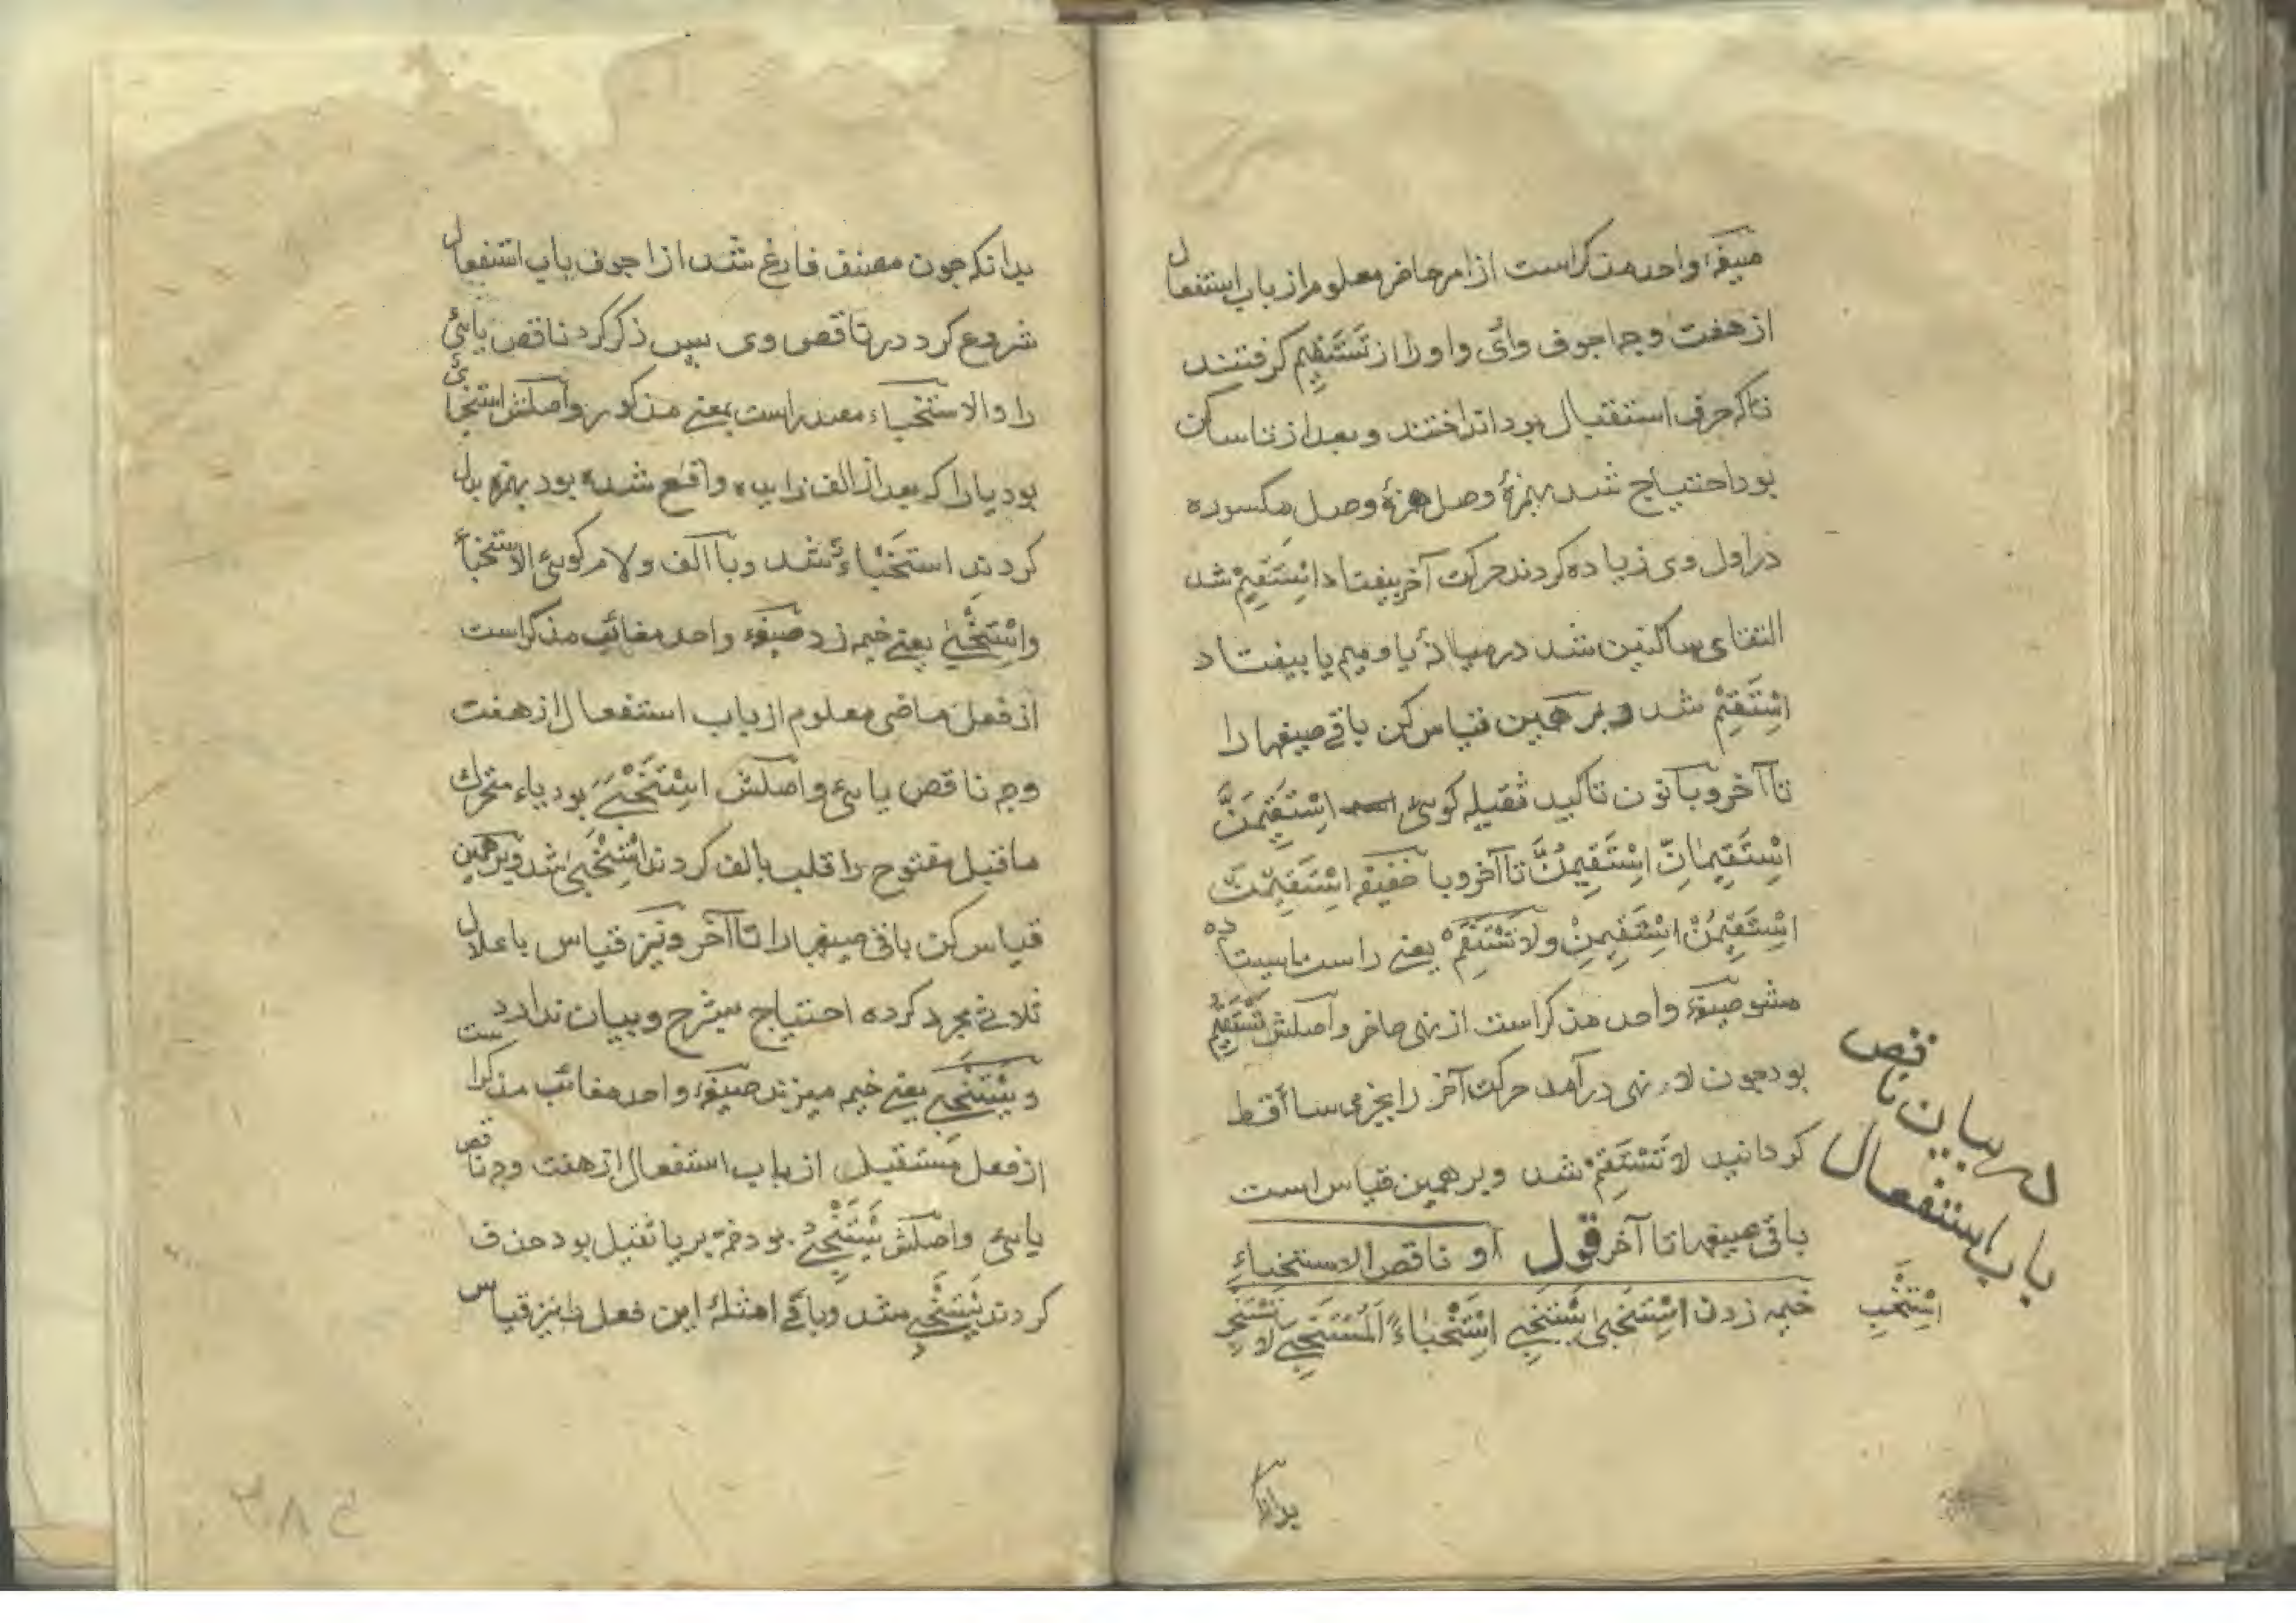 صیغهٔ واحد مذکر است از امر حاضر معلوم از باب استفعال
از هفت وجه اجوف واوی و او را از تَسْتَقِیمُ گرفتند
تا که حرف استقبال بود انداختند و بعد از تا ساکن
بود احتیاج شد بهمزهٔ وصل همزهٔ وصل مکسوره
در اول وی زیاده کردند حرکت آخر بیفتاد اِسْتَقِیْمْ شد
التقای ساکنین شد در میانهٔ یا و میم یا بیفتاد
اِسْتَقِمْ شد و بر همین قیاس کن باقی صیغها را
تا آخر و با نون تاکید ثقیله کویی اِسْتَقِیْمَنَّ
اِسْتَقِیْمَانِّ اِسْتَقِیْمُنَّ تا آخر و با خفیفه اِسْتَقِیْمَنْ
اِسْتَقِیْمُنْ اِسْتَقِیْمِنْ و لَا تَسْتَقِمْ یعنی راست ایستاده
مشو صیغهٔ واحد مذکر است از نهی حاضر و اصلش تَسْتَقِیْمُ
بود چون لاء نهی در آمد حرکت آخر را بجزمی ساقط
کردانید لا تَسْتَقِمْ شد و بر همین قیاس است
باقی صیغها تا آخر قول او ناقص الاستخباء
خیمه زدن اِسْتَخْبٰی یَسْتَخْبِی اِسْتِخْبَاءً اَلْمُسْتَخْبِی لا تَسْتَخْبِ
اِسْتَخْبِ
در بیان ناقص
باب استفعال
بدانکه
بدانکه چون مصنف فارغ شد از اجوف باب استفعال
شروع کرد در ناقص وی پس ذکر کرد ناقص یائی
را و الاستخباء مصدر است بمعنی مذکور و اصلش استخبای
بود یا را که بعد از الف زایده واقع شده بود بهمزه بدل
کردند استخباءٌ شد و با الف و لام کویی الاستخباء
و اِسْتَخْبٰی یعنی خیمه زد صیغهٔ واحد مغائب مذکر است
از فعل ماضی معلوم از باب استفعال از هفت
وجه ناقص یایی و اصلش اِسْتَخْبَیَ بود یاء متحرک
ماقبل مفتوح را قلب بالف کردند اِسْتَخْبٰی شد و بر همین
قیاس کن باقی صیغها را تا آخر و نیز قیاس با علال
ثلاثی مجرد کرده احتیاج بشرح و بیان ندارد
و یَسْتَخْبِی یعنی خیمه میزند صیغهٔ واحد مغائب مذکر است
از فعل مستقبل از باب استفعال از هفت وجه ناقص
یایی و اصلش یَسْتَخْبِیُ بود ضمه بر یا ثقیل بود حذف
کردند یَسْتَخْبِی شد و باقی امثلهٔ این فعل را نیز قیاس